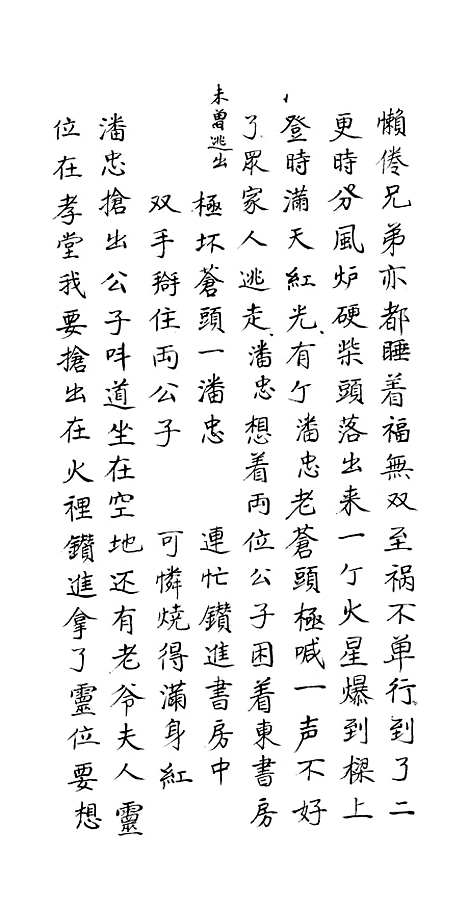 懶倦兄弟亦都睡着福無双至祸不单行到了二
更時分風炉硬柴頭落出来一亇火星爆到樑上
登時滿天紅光有亇潘忠老蒼頭極喊一声不好
了眾家人逃走潘忠想着両位公子困着東書房
未曽逃出
極坏蒼頭一潘忠 連忙鑽進書房中
双手搿住両公子 可憐燒得滿身紅
潘忠搶出公子呌道坐在空地还有老爷夫人靈
位在孝堂我要搶出在火裡鑽進拿了靈位要想